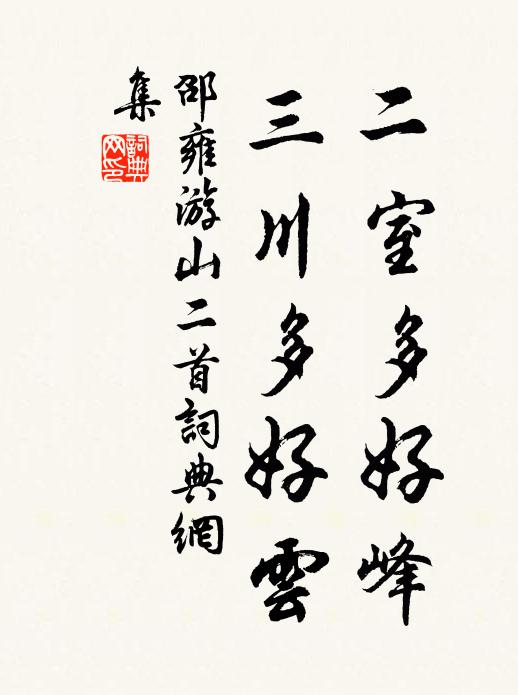 二室多好峰
三川多好雲
邵雍游山二首詞典網
集
詞典
网印